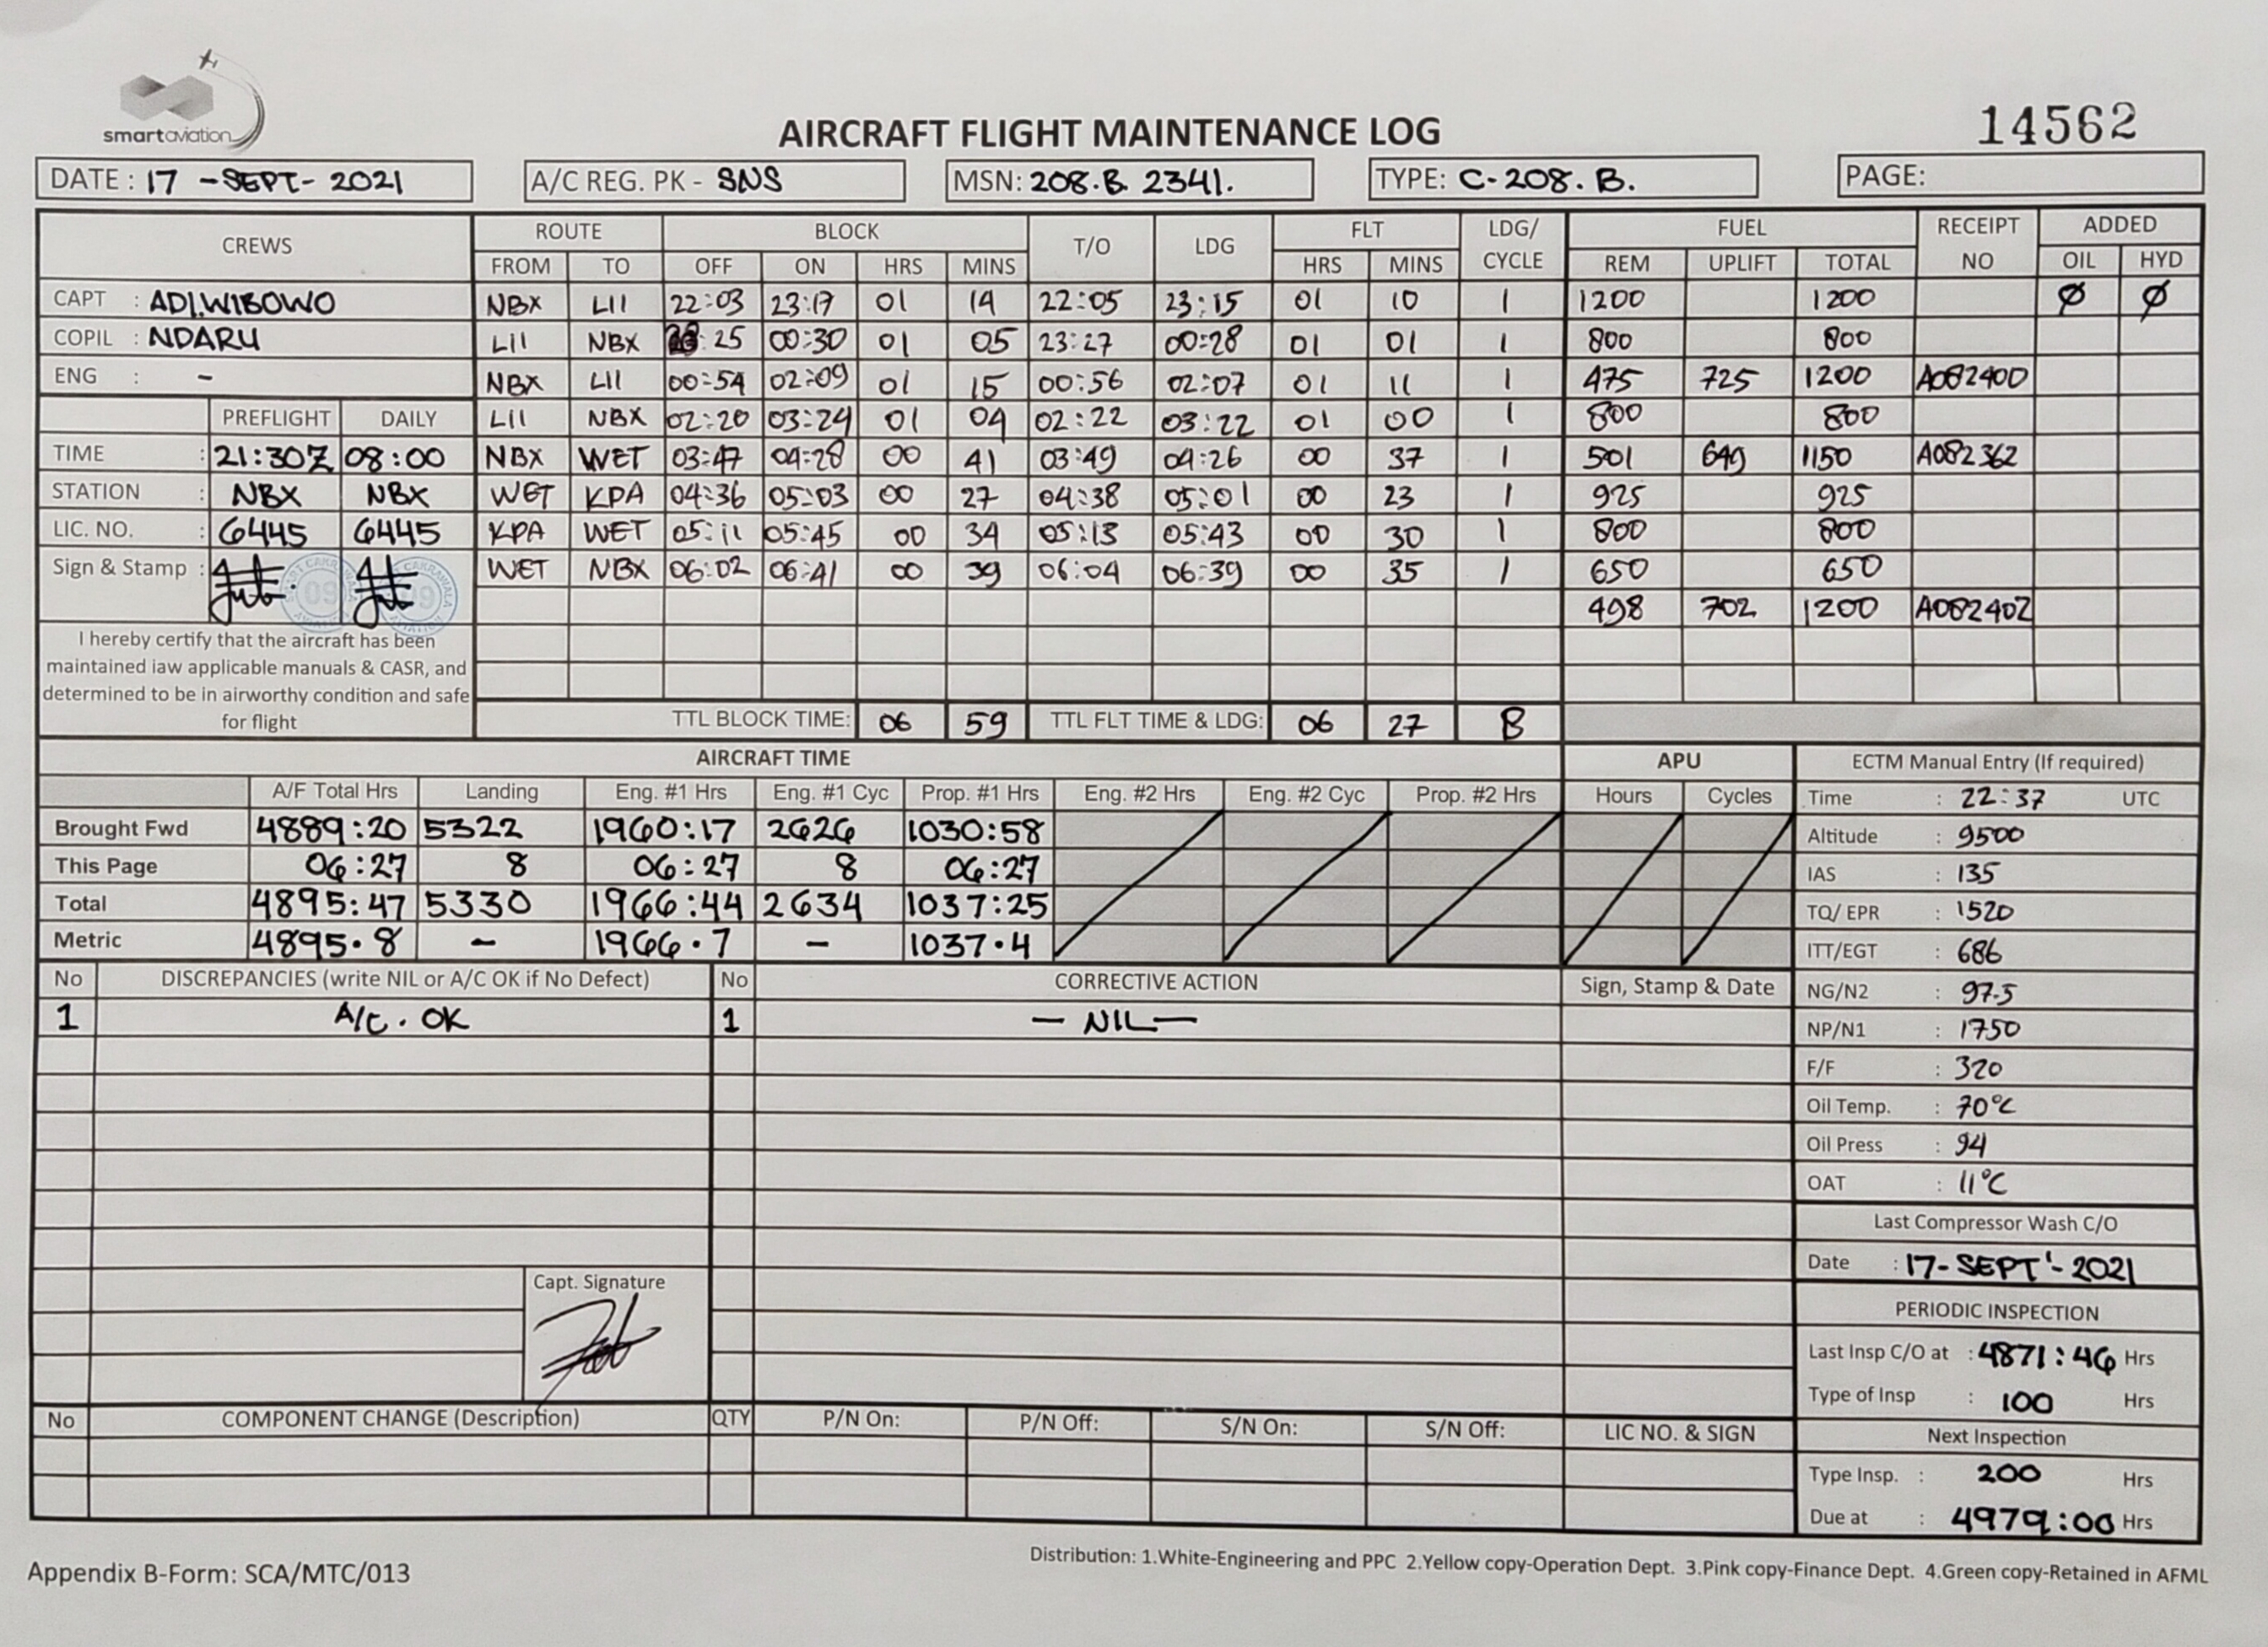 smartaviation
14562
AIRCRAFT FLIGHT MAINTENANCE LOG
DATE : 17 -SEPT- 2021 A/C REG. PK - SNS MSN: 208.B 2341. TYPE: C-208. B. PAGE:
CREWS ROUTE BLOCK T/O LDG FLT LDG/ CYCLE FUEL RECEIPT NO ADDED
FROM TO OFF ON HRS MINS HRS MINS REM UPLIFT TOTAL OIL HYD
CAPT : ADI.WIBOWO NBX LII 22:03 23:17 01 14 22:05 23:15 01 10 1 1200 1200 Ø Ø
COPIL : NDARU LII NBX 23:25 00:30 01 05 23:27 00:28 01 01 1 800 800
ENG : - NBX LII 00:54 02:09 01 15 00:56 02:07 01 11 1 475 725 1200 A082400
PREFLIGHT DAILY LII NBX 02:20 03:24 01 04 02:22 03:22 01 00 1 800 800
TIME : 21:30Z 08:00 NBX WET 03:47 04:28 00 41 03:49 04:26 00 37 1 501 649 1150 A082362
STATION : NBX NBX WET KPA 04:36 05:03 00 27 04:38 05:01 00 23 1 925 925
LIC. NO. : 6445 6445 KPA WET 05:11 05:45 00 34 05:13 05:43 00 30 1 800 800
Sign & Stamp : WET NBX 06:02 06:41 00 39 06:04 06:39 00 35 1 650 650
09 09
498 702 1200 A082402
I hereby certify that the aircraft has been
maintained iaw applicable manuals & CASR, and
determined to be in airworthy condition and safe
for flight
TTL BLOCK TIME: 06 59 TTL FLT TIME & LDG: 06 27 8
AIRCRAFT TIME APU ECTM Manual Entry (If required)
A/F Total Hrs Landing Eng. #1 Hrs Eng. #1 Cyc Prop. #1 Hrs Eng. #2 Hrs Eng. #2 Cyc Prop. #2 Hrs Hours Cycles Time : 22:37 UTC
Brought Fwd 4889:20 5322 1960:17 2626 1030:58 Altitude : 9500
This Page 06:27 8 06:27 8 06:27 IAS : 135
Total 4895:47 5330 1966:44 2634 1037:25 TQ/ EPR : 1520
Metric 4895.8 - 1966.7 - 1037.4 ITT/EGT : 686
No DISCREPANCIES (write NIL or A/C OK if No Defect) No CORRECTIVE ACTION Sign, Stamp & Date NG/N2 : 97.5
1 A/C. OK 1 — NIL — NP/N1 : 1750
F/F : 320
Oil Temp. : 70°C
Oil Press : 94
OAT : 11°C
Last Compressor Wash C/O
Date : 17-SEPT'-2021
Capt. Signature
PERIODIC INSPECTION
Last Insp C/O at : 4871:46 Hrs
Type of Insp : 100 Hrs
No COMPONENT CHANGE (Description) QTY P/N On: P/N Off: S/N On: S/N Off: LIC NO. & SIGN
Next Inspection
Type Insp. : 200 Hrs
Due at : 4979:00 Hrs
Appendix B-Form: SCA/MTC/013
Distribution: 1.White-Engineering and PPC 2.Yellow copy-Operation Dept. 3.Pink copy-Finance Dept. 4.Green copy-Retained in AFML